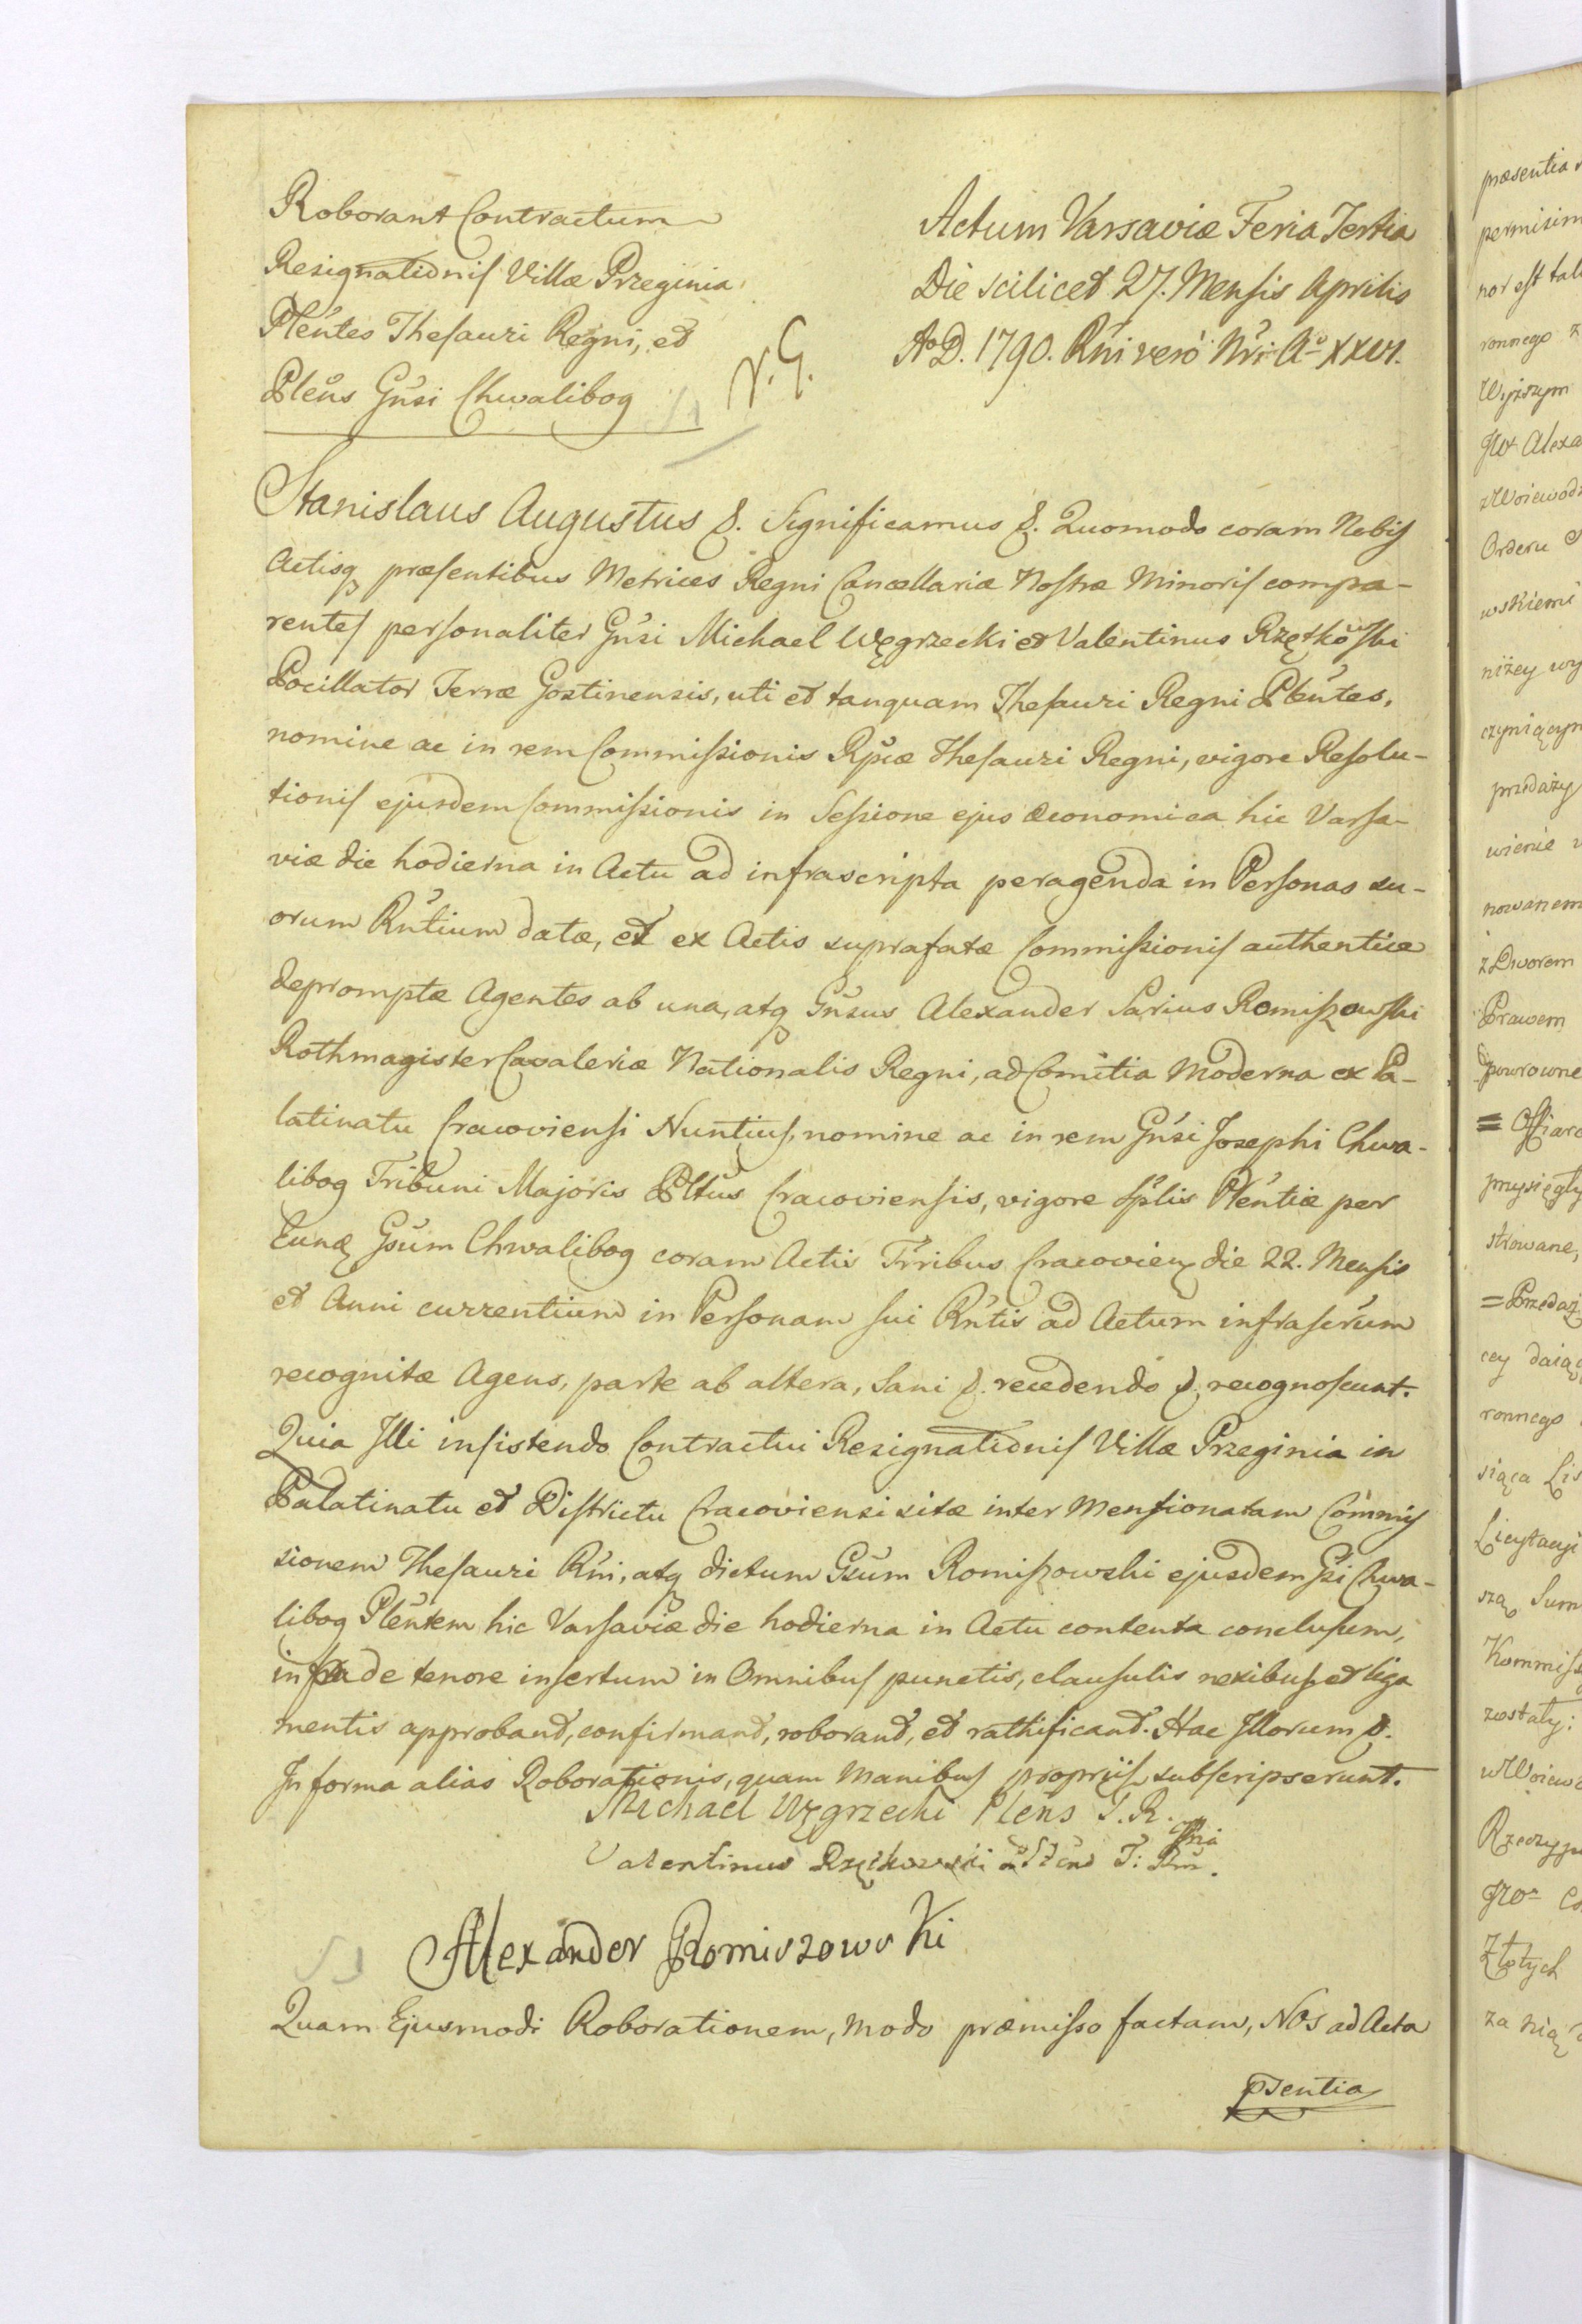 Roborant Contractum
Resignationis Villæ Przeginia
Plentes Thesauri Regni, et
Plens Gnsi Chwalibog
N. G.
Actum Varsaviæ Feria Tertia
Die scilicet 27. Mensis Aprilis
Ao D. 1790. Rni vero Nri Ao XXVI.
Stanislaus Augustus &. Significamus &. Quomodo coram Nobis
Actisq præsentibus Metrices Regni Cancellariæ Nostræ Minoris compa-
rentes personaliter Gnsi Michael Węgrzecki et Valentinus Rzętkowski
Pocillator Terræ Gostinensis, uti et tanquam Thesauri Regni Plentes,
nomine ac in rem Commissionis Rpcæ Thesauri Regni, vigore Resolu-
tionis ejusdem Commissionis in Sessione ejus œconomica hic Varsa-
viæ die hodierna in Actu ad infrascripta peragenda in Personas su-
orum Rntium datæ, et ex Actis suprafatæ Commissionis authentice
depromptæ Agentes ab una, atq Gnsus Alexander Sarius Romiszowski
Rothmagister Cavaleriæ Nationalis Regni, ad Comitia Moderna ex Pa-
latinatu Cracoviensi Nuntius, nomine ac in rem Gnsi Josephi Chwa-
libog Tribuni Majoris Pltus Cracoviensis, vigore Splis Plentiæ per
Eunq Gsum Chwalibog coram Actis Trribus Cracovien die 22. Mensis
et Anni currentium in Personam sui Rntis ad Actum infrascrum
recognitæ Agens, parte ab altera, Sani &. recedendo &. recognoscunt.
Quia Illi insistendo Contractui Resignationis Villæ Przeginia in
Palatinatu et Districtu Cracoviensi sitæ inter Mentionatam Commis
sionem Thesauri Rni, atq dictum Gsum Romiszowski ejusdem Gsi Chwa-
libog Plentem hic Varsaviæ die hodierna in Actu contenta conclusum,
infra de tenore insertum in Omnibus punctis, clausulis nexibus et liga
mentis approband, confirmand, roborand, et rathificand. Hac Illorum &.
In forma alias Roborationis, quam Manibus propriis subscripserunt.
Michael Węgrzecki Plens T. R.
Valentinus Rzętkowski Plens T: Rni.
Alexander Romiszowski
Quam Ejusmodi Roborationem, modo præmisso factam, Nos ad Acta
psentia
præsentia
permisim
nor est tal
ronnego z
Wyższym
Alexa
z Woiewodz
Orderu
wskiemi
niżey wy
czyniącym
przedaży
wienie
nowanem
z Dworem
Prawem
powrowne
= Ofiaro
przysięgły
strowane,
= Przedaż
cey daiąc
ronnego
siąca Lis
Licytacyi
szą Sum
Kommiss
zostały:
w Woiewo
Rzeczypo
Złotych
za nią